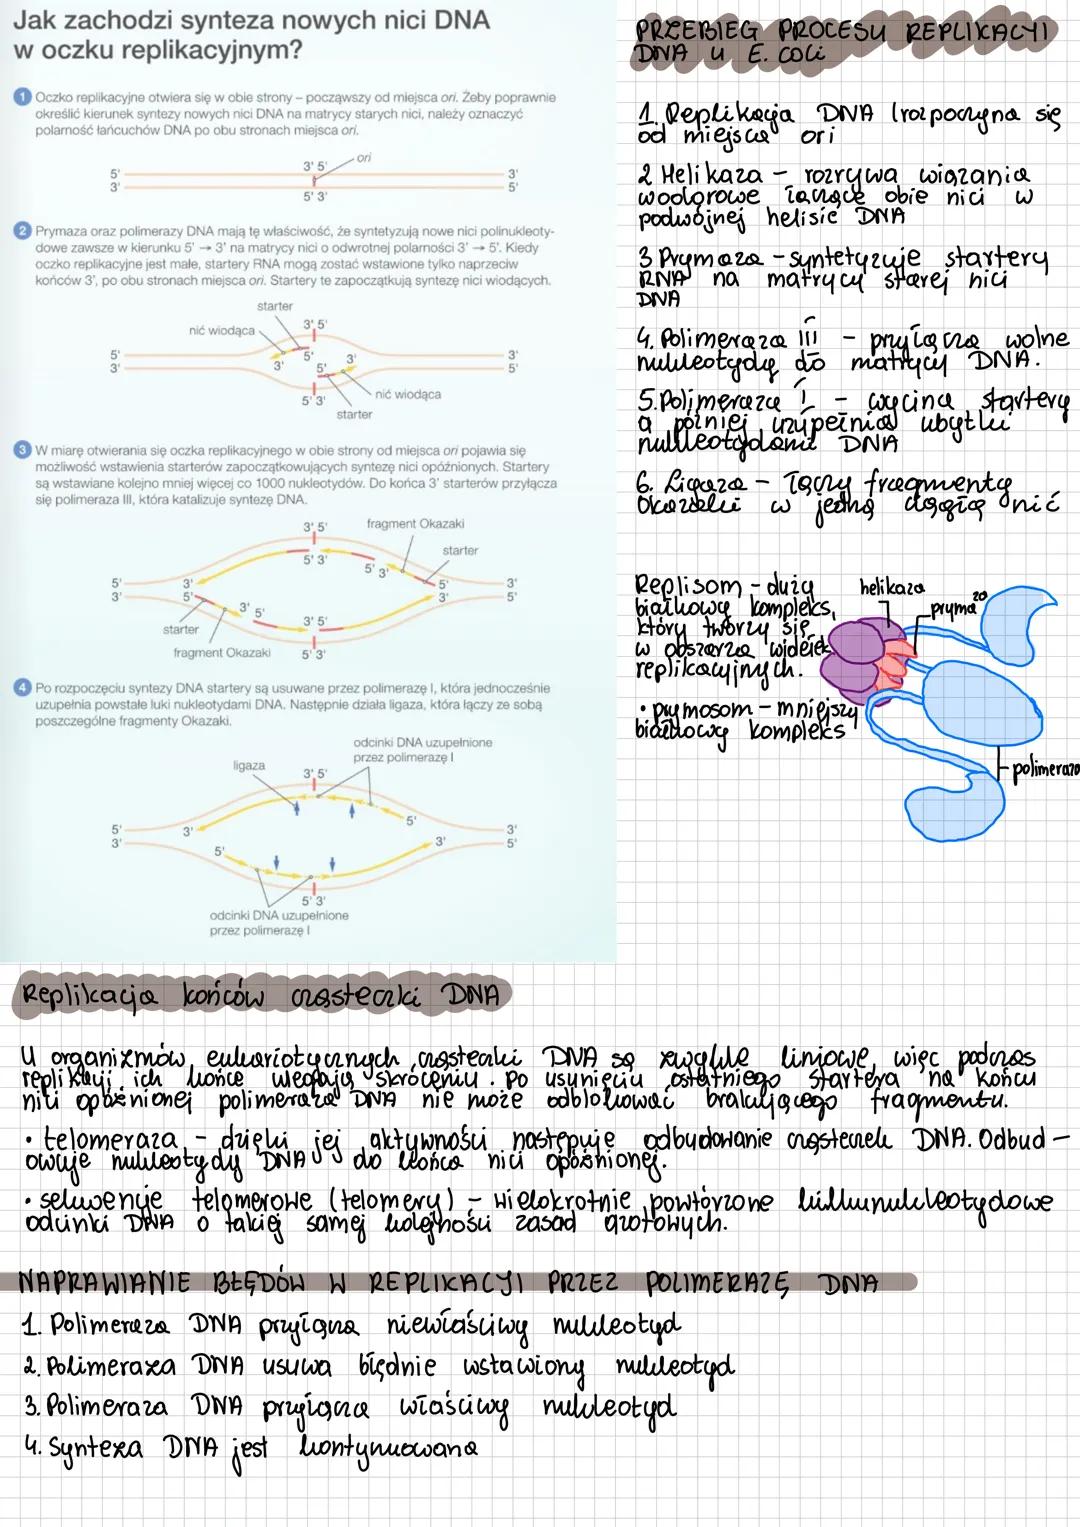 Jak zachodzi synteza nowych nici DNA
w oczku replikacyjnym?
1 Oczko replikacyjne otwiera się w obie strony – począwszy od miejsca ori. Żeby poprawnie
określić kierunek syntezy nowych nici DNA na matrycy starych nici, należy oznaczyć
polarność łańcuchów DNA po obu stronach miejsca ori.
ori
3' 5'
5' 3'
3' 5'
5' 3'
2 Prymaza oraz polimerazy DNA mają tę właściwość, że syntetyzują nowe nici polinukleoty-
dowe zawsze w kierunku 5' → 3' na matrycy nici o odwrotnej polarności 3' → 5'. Kiedy
oczko replikacyjne jest małe, startery RNA mogą zostać wstawione tylko naprzeciw
końców 3', po obu stronach miejsca ori. Startery te zapoczątkują syntezę nici wiodących.
starter
nić wiodąca
3' 5'
5' 5' 3' 3'
3' 3' 5' 5'
nić wiodąca
5' 3'
starter
3 W miarę otwierania się oczka replikacyjnego w obie strony od miejsca ori pojawia się
możliwość wstawienia starterów zapoczątkowujących syntezę nici opóźnionych. Startery
są wstawiane kolejno mniej więcej co 1000 nukleotydów. Do końca 3' starterów przyłącza
się polimeraza III, która katalizuje syntezę DNA.
3' 5' fragment Okazaki
starter
5' 3'
5' 3'
5' 3' 5' 3'
3' 5' 3' 5'
3' 5'
3' 5'
starter
fragment Okazaki 5' 3'
4 Po rozpoczęciu syntezy DNA startery są usuwane przez polimerazę I, która jednocześnie
uzupełnia powstałe luki nukleotydami DNA. Następnie działa ligaza, która łączy ze sobą
poszczególne fragmenty Okazaki.
odcinki DNA uzupełnione
przez polimerazę I
ligaza
3' 5'
5'
5' 3' 3'
3' 3' 5'
5'
5' 3'
odcinki DNA uzupełnione
przez polimerazę I
PRZEBIEG PROCESU REPLIKACJI
DNA U E. coli
1. Replikacja DNA (rozpoczyna się
od miejsca ori
2 Helikaza – rozrywa wiązania
wodorowe łączące obie nici w
podwójnej helisie DNA
3 Prymaza – syntetyzuje startery
RNA na matrycy starej nici
DNA
4. Polimeraza III – przyłącza wolne
nukleotydy do matrycy DNA.
5. Polimeraza I – wycina startery
a później uzupełnia ubytki
nukleotydami DNA
6. Ligaza – łączy fragmenty
Okazaki w jedną nić
Replisom – duży
białkowy kompleks,
który tworzy się
w obszarze widełek
replikacyjnych.
• prymosom – mniejszy
białkowy kompleks
helikaza
prymaza
polimeraza
Replikacja końców cząsteczki DNA
U organizmów eukariotycznych cząsteczki DNA są zwykle liniowe, więc podczas
replikacji ich końce ulegają skróceniu. Po usunięciu ostatniego startera na końcu
nici opóźnionej polimeraza DNA nie może odblokować brakującego fragmentu.
• telomeraza – dzięki jej aktywności następuje odbudowanie cząsteczek DNA. Odbud-
owuje nukleotydy DNA do końca nici opóźnionej.
• sekwencje telomerowe (telomery) – wielokrotnie powtórzone kilkunukleotydowe
odcinki DNA o takiej samej kolejności zasad azotowych.
NAPRAWIANIE BŁĘDÓW W REPLIKACJI PRZEZ POLIMERAZĘ DNA
1. Polimeraza DNA przyłącza niewłaściwy nukleotyd
2. Polimeraza DNA usuwa błędnie wstawiony nukleotyd
3. Polimeraza DNA przyłącza właściwy nukleotyd
4. Synteza DNA jest kontynuowana